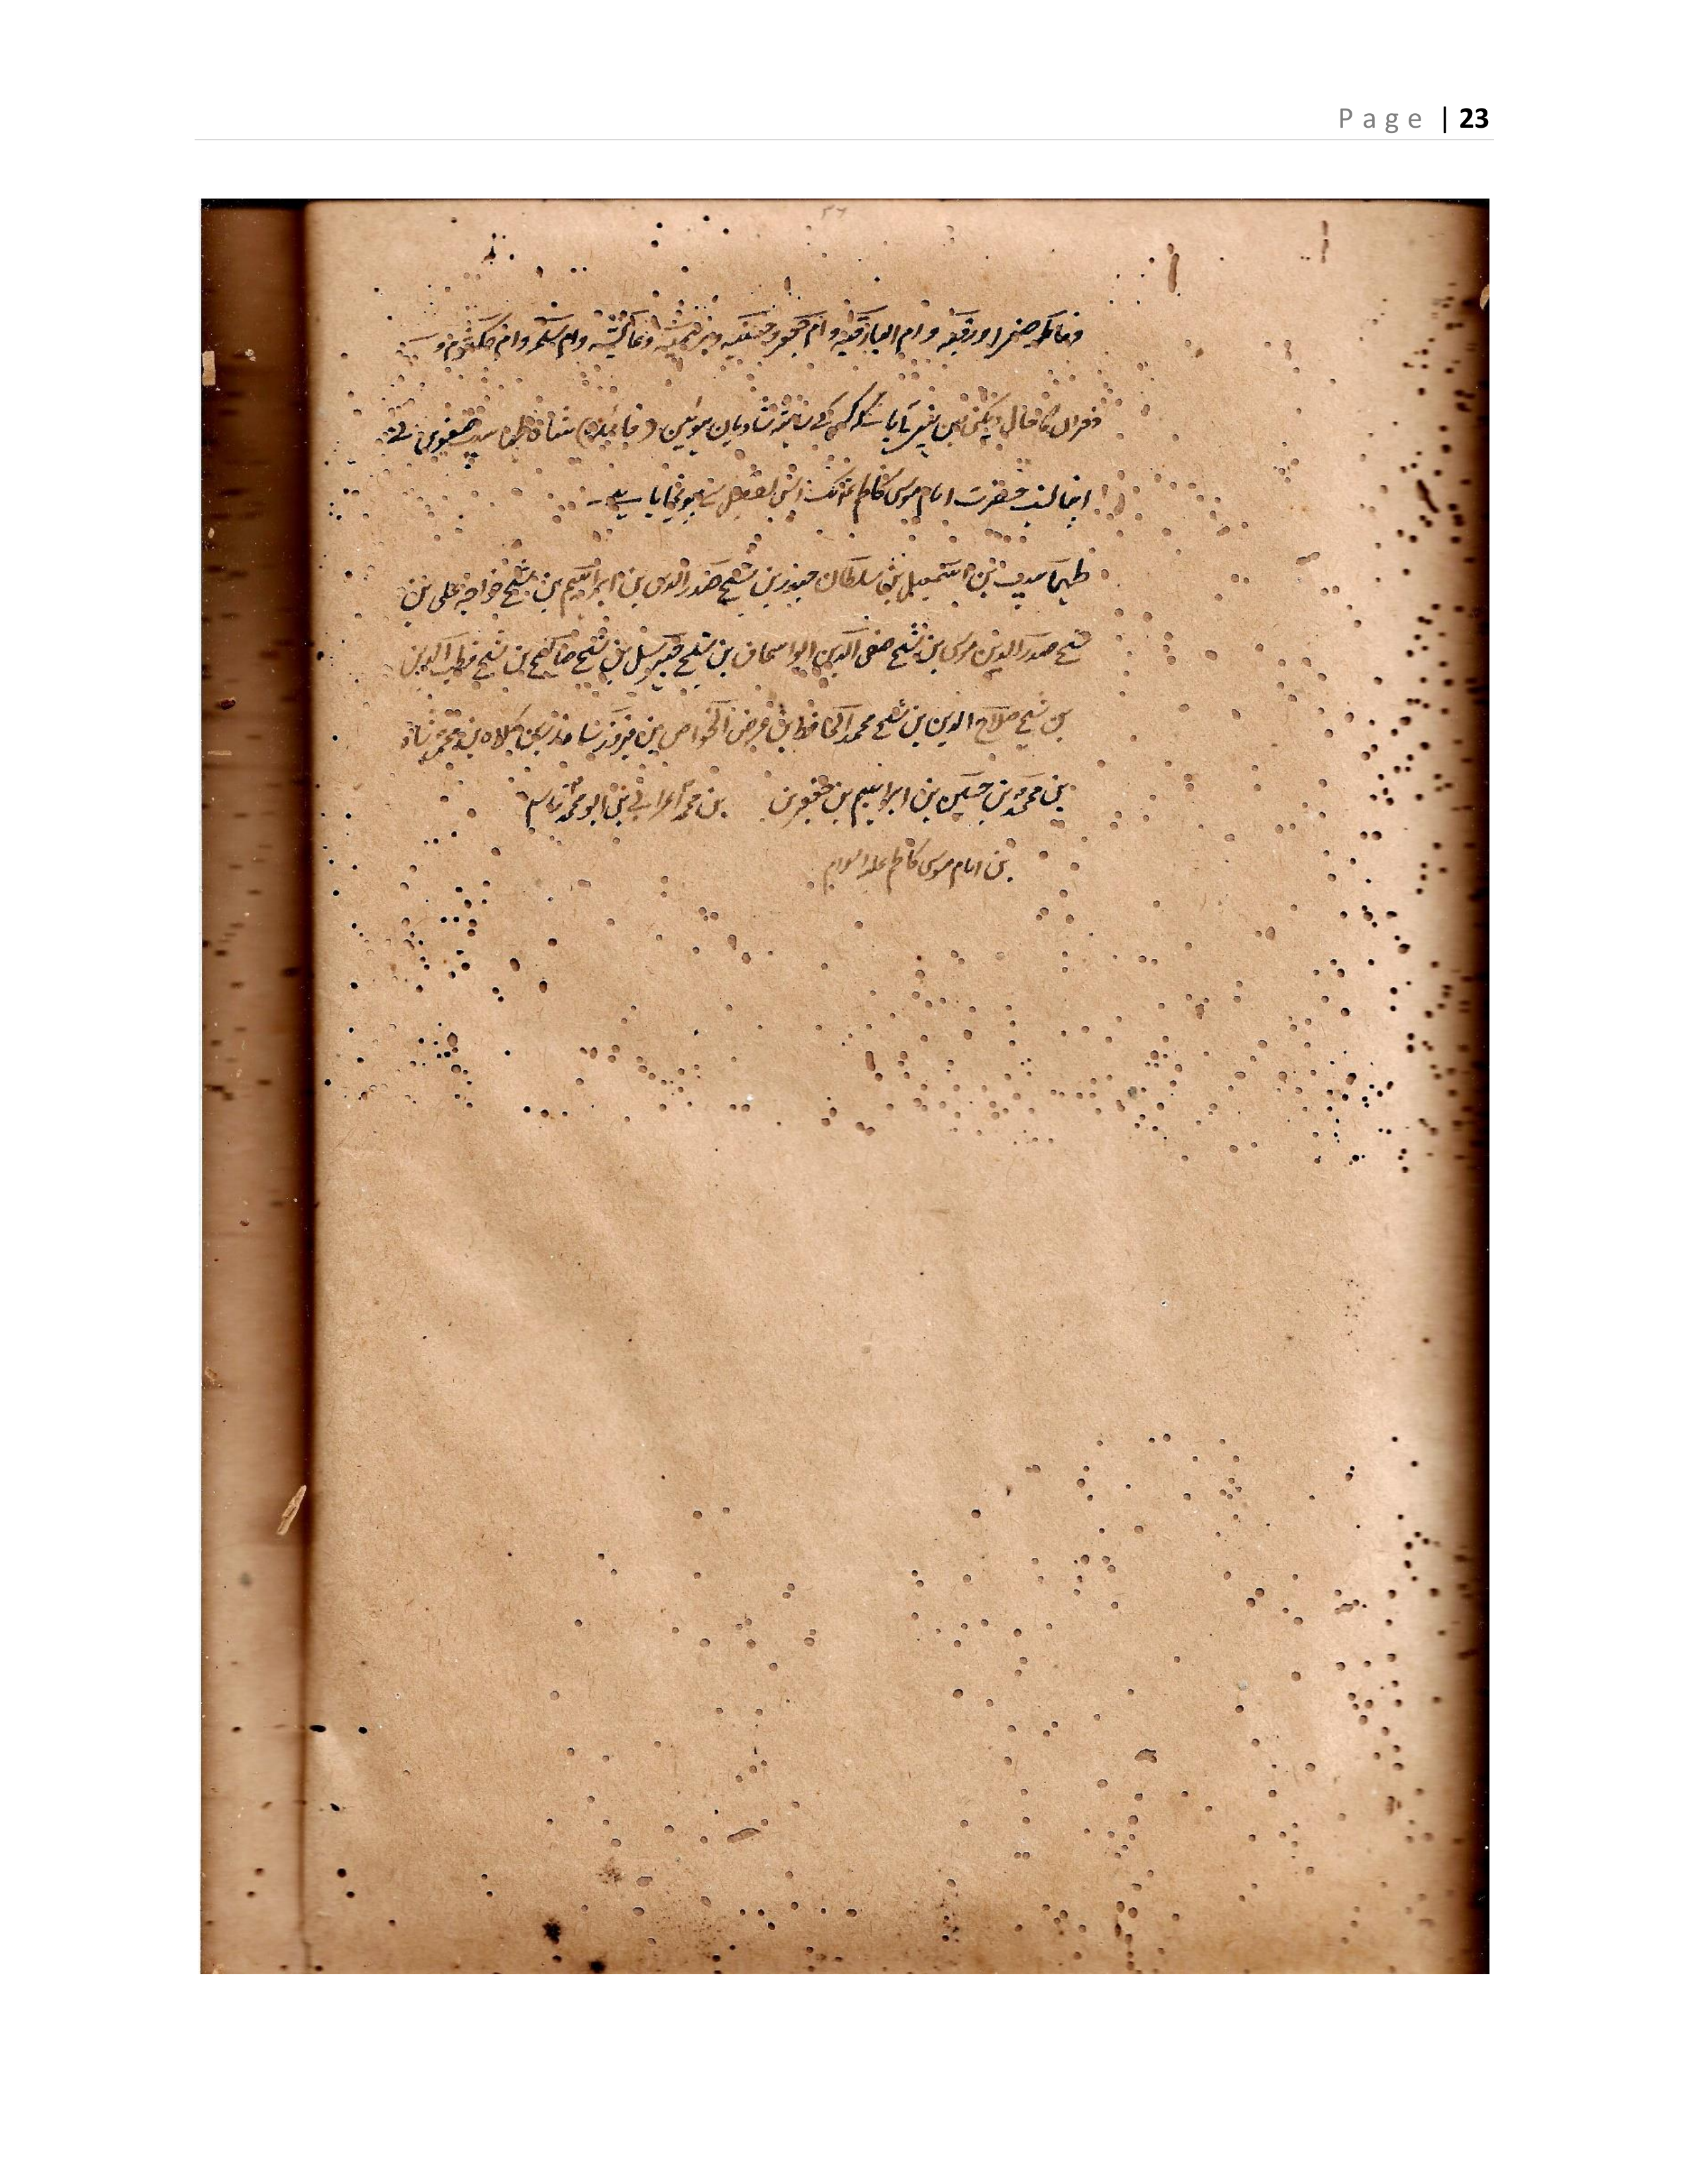 Page | 23
وفاطمہ صغرا ورقیہ و ام ابیہا رقیہ و ام جعفر و عائشہ وام سلمہ وام کلثوم و
کا حال لیکن بن نہیں پایا کہ کس کس کے ساتھ شادیان ہوئین (فائدہ) شاہ صفوی نے
اپنا نسب حضرت امام موسی کاظم تک اس تفصیل سے پہونچایا ہے۔
طہماسپ بن اسمعیل بن سلطان حیدر بن شیخ صدر الدین بن ابراہیم بن شیخ خواجہ علی بن
شیخ صدر الدین موسی بن شیخ صفی الدین ابو اسحاق بن شیخ جبرئیل بن شیخ صالح بن شیخ قطب الدین
بن شیخ صلاح الدین بن شیخ محمد الحافظ بن عوض الخواص بن فیروز شاہ زرین کلاہ بن محمد شاہ
بن محمد بن حسین بن ابراہیم بن جعفر بن بن محمد اعرابی بن ابو محمد قاسم
بن امام موسی کاظم علیہ السلام